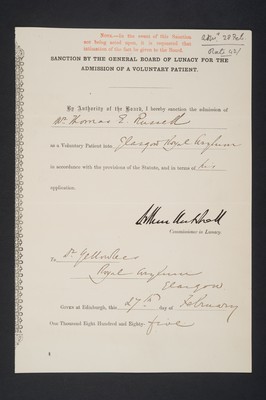 NOTE.—In the event of this Sanction
not being acted upon, it is requested that
intimation of the fact be given to the Board.
28 Feb
SANCTION BY THE GENERAL BOARD OF LUNACY FOR THE
ADMISSION OF A VOLUNTARY PATIENT.
By Authority of the Board, I hereby sanction the admission of
Mr Thomas E. Russell
as a Voluntary Patient into Glasgow Royal Asylum
in accordance with the provisions of the Statute, and in terms of his
application.
Commissioner in Lunacy.
To Dr Yellowlees
Royal Asylum
Glasgow
Given at Edinburgh, this 27th day of February
One Thousand Eight Hundred and Eighty-five
4